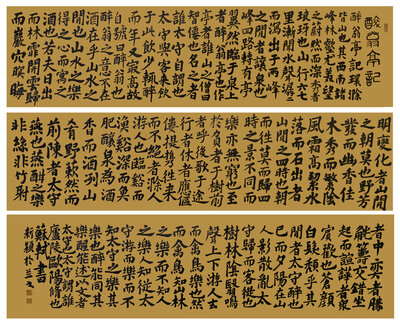 醉翁亭記
醉翁亭記環滁
皆山也其西南諸
峰林壑尤美望
之蔚然而深秀者
琅琊也山行六七
里漸聞水聲潺潺
而瀉出于兩峰
之間者讓泉也
峰回路轉有亭
翼然臨于泉上
亭者誰山之僧曰
誰太守自謂也
太守與客來飲
于此飲少輒醉
而年又寂高故
自號曰醉翁也
醉翁之意不在
酒在乎山水之
間也山水之樂
得之心而寓之
酒也若夫日出
而林霏開雲歸
而巖穴暝晦
明變化者山間
之朝暮也野芳
發而幽香佳
木秀而繁陰
風霜高絜水
落而石出者
山間之四時也朝
而往莫而歸四
時之景不同而
樂亦無窮也至
於負者歌于塗
行者休于樹前
者呼後者應傴
僂提攜往來而
不絕者滁人游也
臨谿而漁
谿深而魚
肥釀泉為酒泉
香而酒洌山
肴野蔌雜然而
前陳者太守
燕也燕酣之樂
非絲非竹射
者中弈者勝
觥籌交錯坐
起而諠譁者衆
賓歡也蒼顏
白髮頹乎其
間者太守醉也
已而夕陽在山
人影散亂太
守歸而賓客從也
樹林陰翳鳴
聲上下游人去
而禽鳥樂也然
而禽鳥知山林
之樂而不知人
之樂人知從太
守游而樂而不
知太守之樂其
樂也醉能同其
樂醒能述以文者
太守也太守謂誰
廬陵歐陽修也
蘇軾書